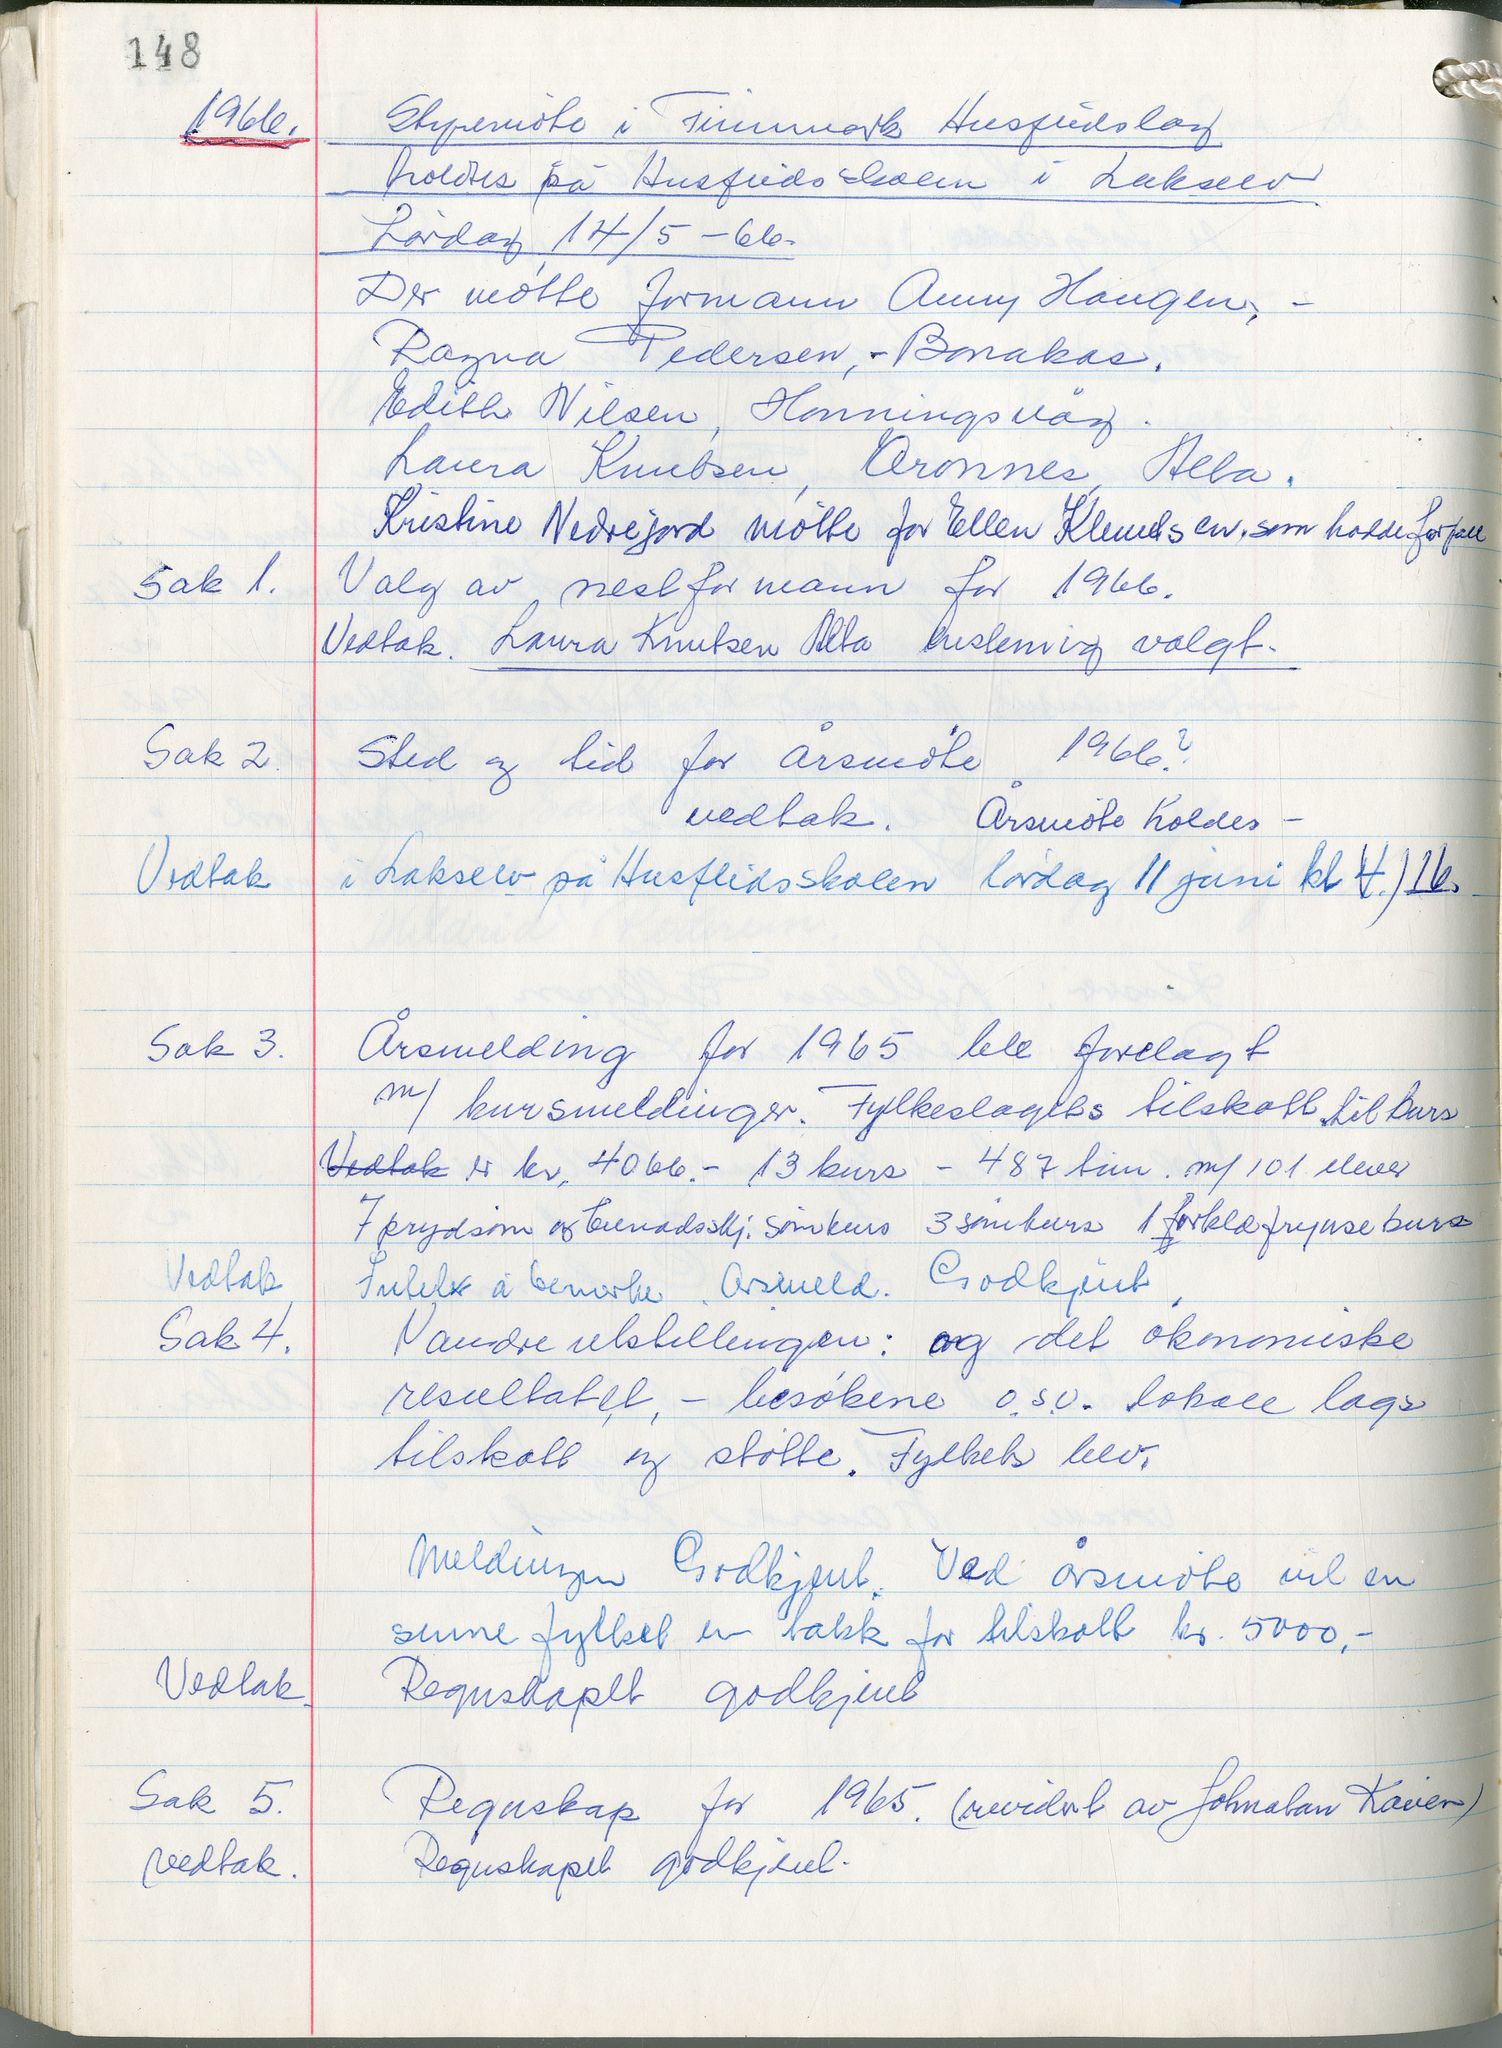 148
1966. Styremöte i Finnmark Husflidslag
holdtes på Husflidsskolen i Lakselv
Lördag 14/5 - 66.
Der mötte formann Anny Haugen, -
Ragna Pedersen, - Bonakas.
Edith Nilsen, Honningsvåg.
Laura Knutsen, Aronnes, Alta.
Kristine Nedrejord mötte for Ellen Klemetsen, som hadde forfall
Sak 1. Valg av nestformann for 1966.
Vedtak. Laura Knutsen Alta enstemig valgt.
Sak 2. Sted og tid for årsmöte 1966?
vedtak. Årsmöte holdes -
Vedtak i Lakselv på Husflidsskolen lördag 11 juni kl 4.) 16.
Sak 3. Årsmelding for 1965 ble forelagt
m/ kursmeldinger. Fylkeslagets tilskott til kurs
Vedtak er kr. 4066.- 13 kurs - 487 tim. m/ 101 elever
7 prydsöm og bunadsskj. sömkurs 3 sömkurs 1 forklefrynse kurs
Vedtak Intet å bemerke. Årsmeld. Godkjent.
Sak 4. Vandreutstillingen: og det ökonomiske
resultatet, - besökene o.s.v. lokale lags
tilskott og stötte. Fylkets bev.
Meldingen Godkjent. Ved årsmöte vil en
sende fylket en takk for tilskott kr. 5000,-
Vedtak. Regnskapet godkjent
Sak 5. Regnskap for 1965. (revidert av Johnatan Kaiven)
vedtak. Regnskapet godkjent.